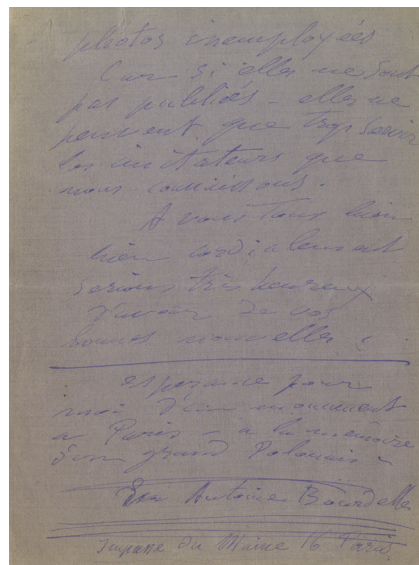 photos inemployées
Car si elles ne sont
pas publiés - elles ne
peuvent que trop servir
les imitateurs que
nous connaissons.
A vous tous bien
bien cordialement
serions très heureux
d'avoir de vos
bonnes nouvelles
espérance pour
moi d'un monument
a Paris - a la mémoire
d'un grand Polonais -
Antoine Bourdelle
Impasse du Maine 16 Paris